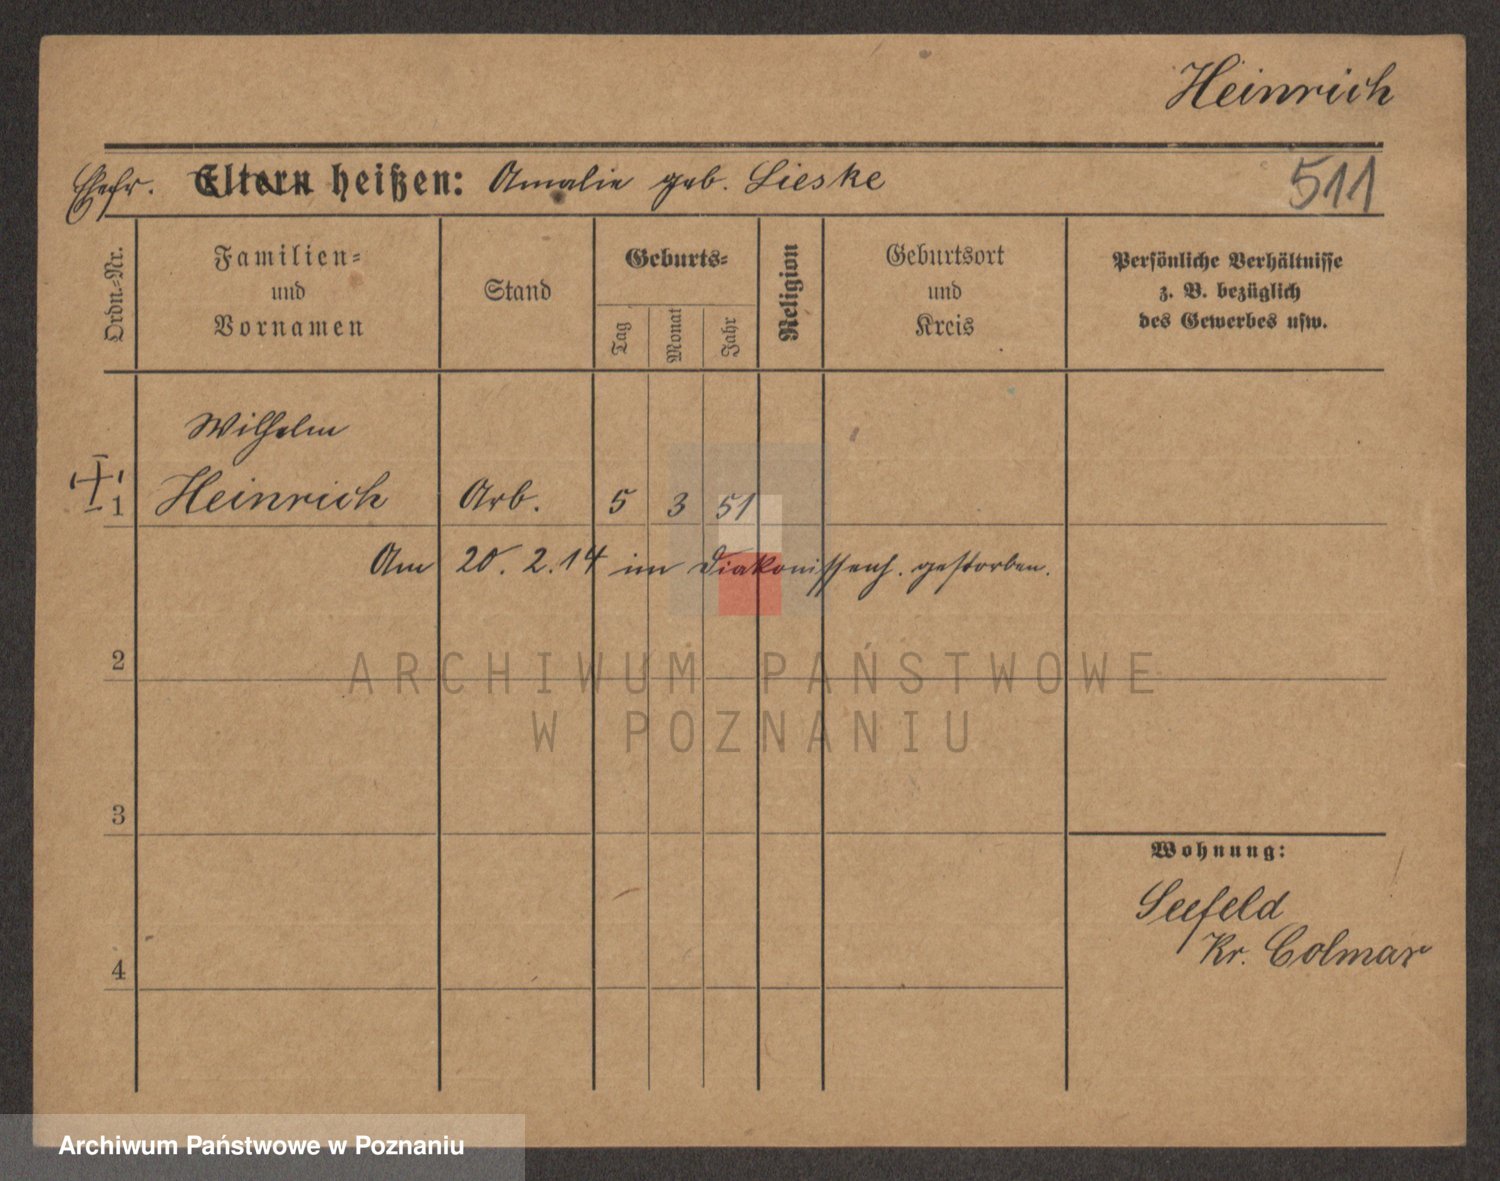 Heinrich
Ehefr. Eltern heißen: Amalie geb. Lieske
511
Ordn.-Nr.
Familien-
und
Vornamen
Stand
Geburts-
Tag
Monat
Jahr
Religion
Geburtsort
und
Kreis
Persönliche Verhältnisse
z. B. bezüglich
des Gewerbes usw.
Wilhelm
1 Heinrich Arb. 5 3 51
Am 20. 2. 14 im Diakonissenh. gestorben.
2
ARCHIWUM PAŃSTWOWE
W POZNANIU
3
Wohnung:
Seefeld
Kr. Colmar
4
Archiwum Państwowe w Poznaniu